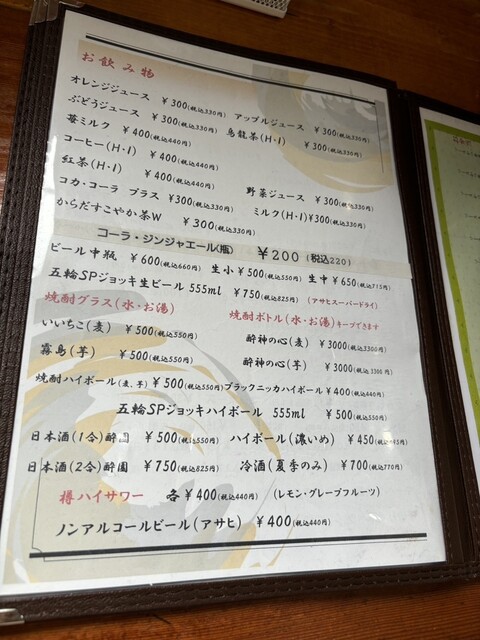 お飲み物
オレンジジュース ￥300(税込330円) アップルジュース ￥300(税込330円)
ぶどうジュース ￥300(税込330円) 烏龍茶(H・I) ￥300(税込330円)
苺ミルク ￥400(税込440円)
コーヒー(H・I) ￥400(税込440円)
紅茶(H・I) ￥400(税込440円) 野菜ジュース ￥300(税込330円)
コカ・コーラ プラス ￥300(税込330円) ミルク(H・I)￥300(税込330円)
からだすこやか茶W ￥300(税込330円)
コーラ・ジンジャエール(瓶) ￥200 (税込220)
ビール中瓶 ￥600(税込660円) 生小￥500(税込550円) 生中￥650(税込715円)
五輪SPジョッキ生ビール 555ml ￥750(税込825円) (アサヒスーパードライ)
焼酎グラス(水・お湯) 焼酎ボトル(水・お湯)キープできます
いいちこ(麦) ￥500(税込550円) 酔神の心(麦) ￥3000(税込3300円)
霧島(芋) ￥500(税込550円) 酔神の心(芋) ￥3000(税込3300円)
焼酎ハイボール(麦、芋) ￥500(税込550円)ブラックニッカハイボール￥400(税込440円)
五輪SPジョッキハイボール 555ml ￥500(税込550円)
日本酒(1合)酔園 ￥500(税込550円) ハイボール(濃いめ) ￥450(税込495円)
日本酒(2合)酔園 ￥750(税込825円) 冷酒(夏季のみ) ￥700(税込770円)
樽ハイサワー 各￥400(税込440円) (レモン・グレープフルーツ)
ノンアルコールビール(アサヒ) ￥400(税込440円)